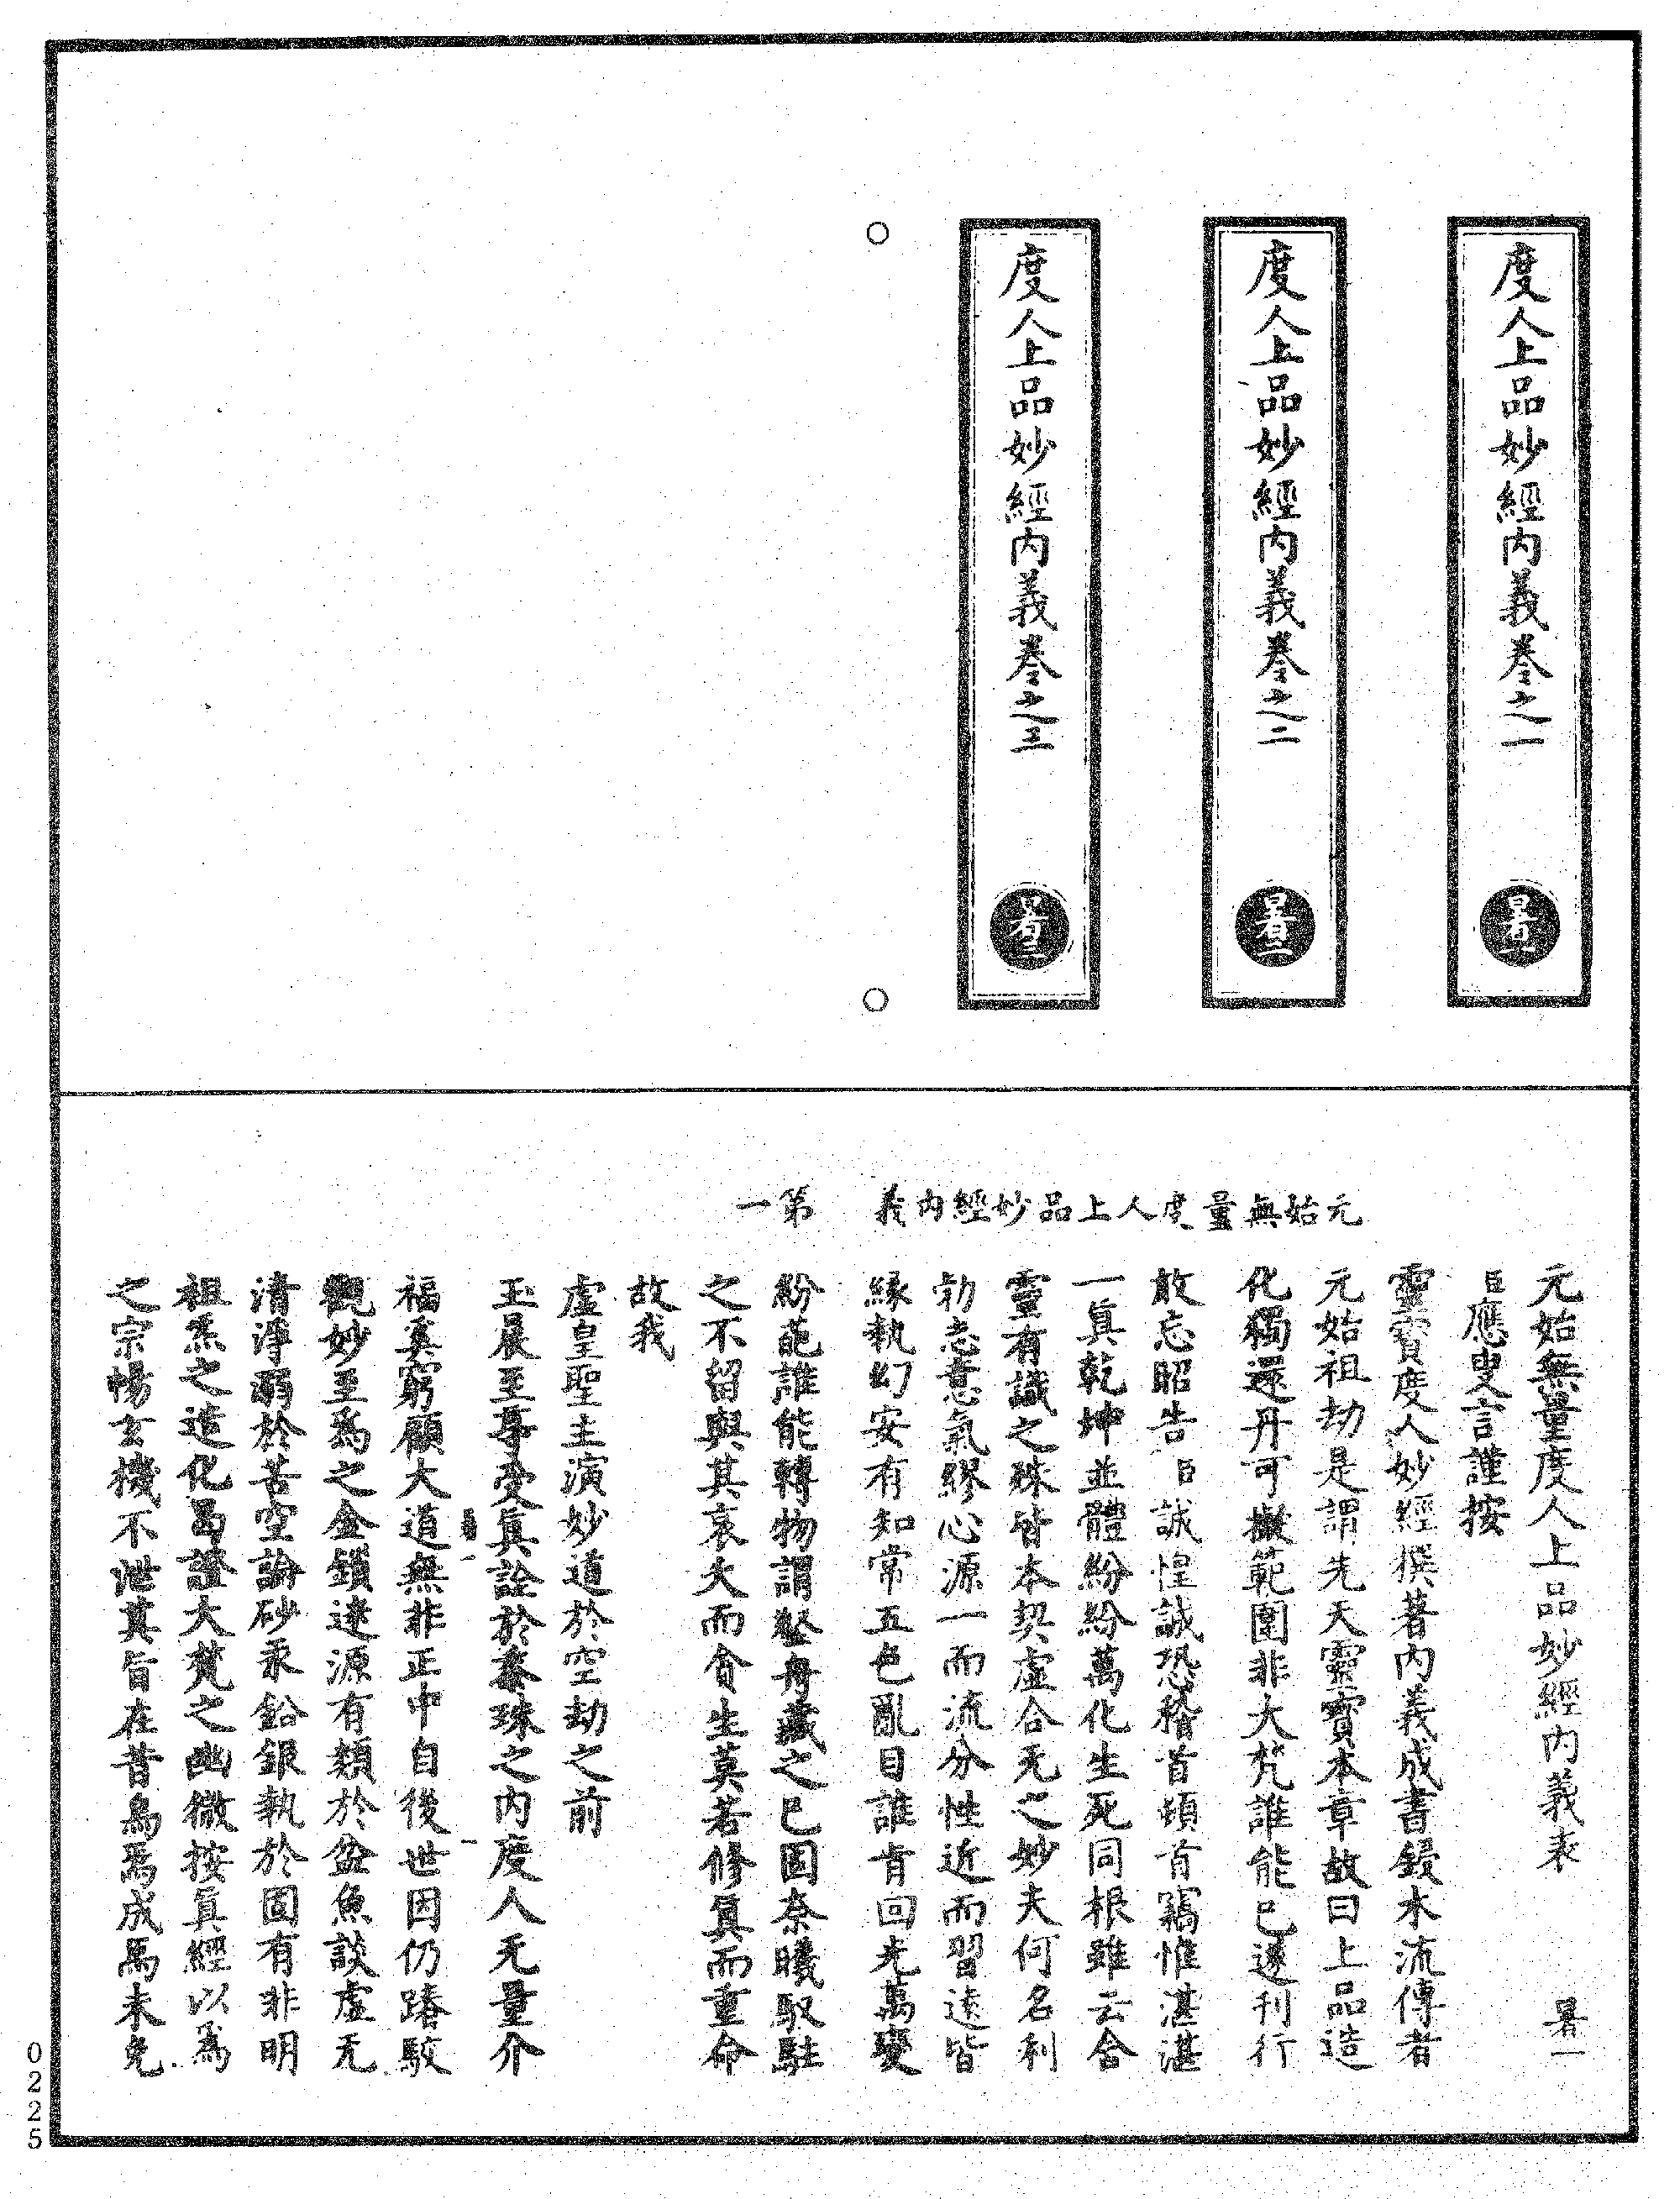 度人上品妙經內義卷之一
暑一
度人上品妙經內義卷之二
暑二
度人上品妙經內義卷之三
暑三
元始無量度人上品妙經內義 第一
元始無量度人上品妙經內義表 暑一
臣應叟言謹按
靈寶度人妙經撰著內義成書鋟木流傳者
元始祖劫是謂先天靈寶本章故曰上品造
化獨還丹可擬範圍非大梵誰能已遂刊行
敢忘昭告臣誠惶誠恐稽首頓首竊惟湛湛
一真乾坤並體紛紛萬化生死同根雖云含
靈有識之殊皆本契虛合无之妙夫何名利
勃志意氣繆心源一而流分性近而習遠皆
緣執幻安有知常五色亂目誰肯回光萬變
紛葩誰能轉物謂壑舟藏之已固柰曦馭駐
之不留與其哀夭而貪生莫若修真而重命
故我
虛皇聖主演妙道於空劫之前
玉晨至尊受真詮於黍珠之內度人无量介
福奚窮顧大道無非正中自後世因仍踳駮
觀妙至為之金鎖遼源有類於盆魚談虛无
清淨溺於苦空論砂汞鉛銀執於固有非明
祖炁之造化曷證大梵之幽微按真經以為
之宗暢玄機不泄其旨在昔烏焉成馬未免
暑一
一
0225